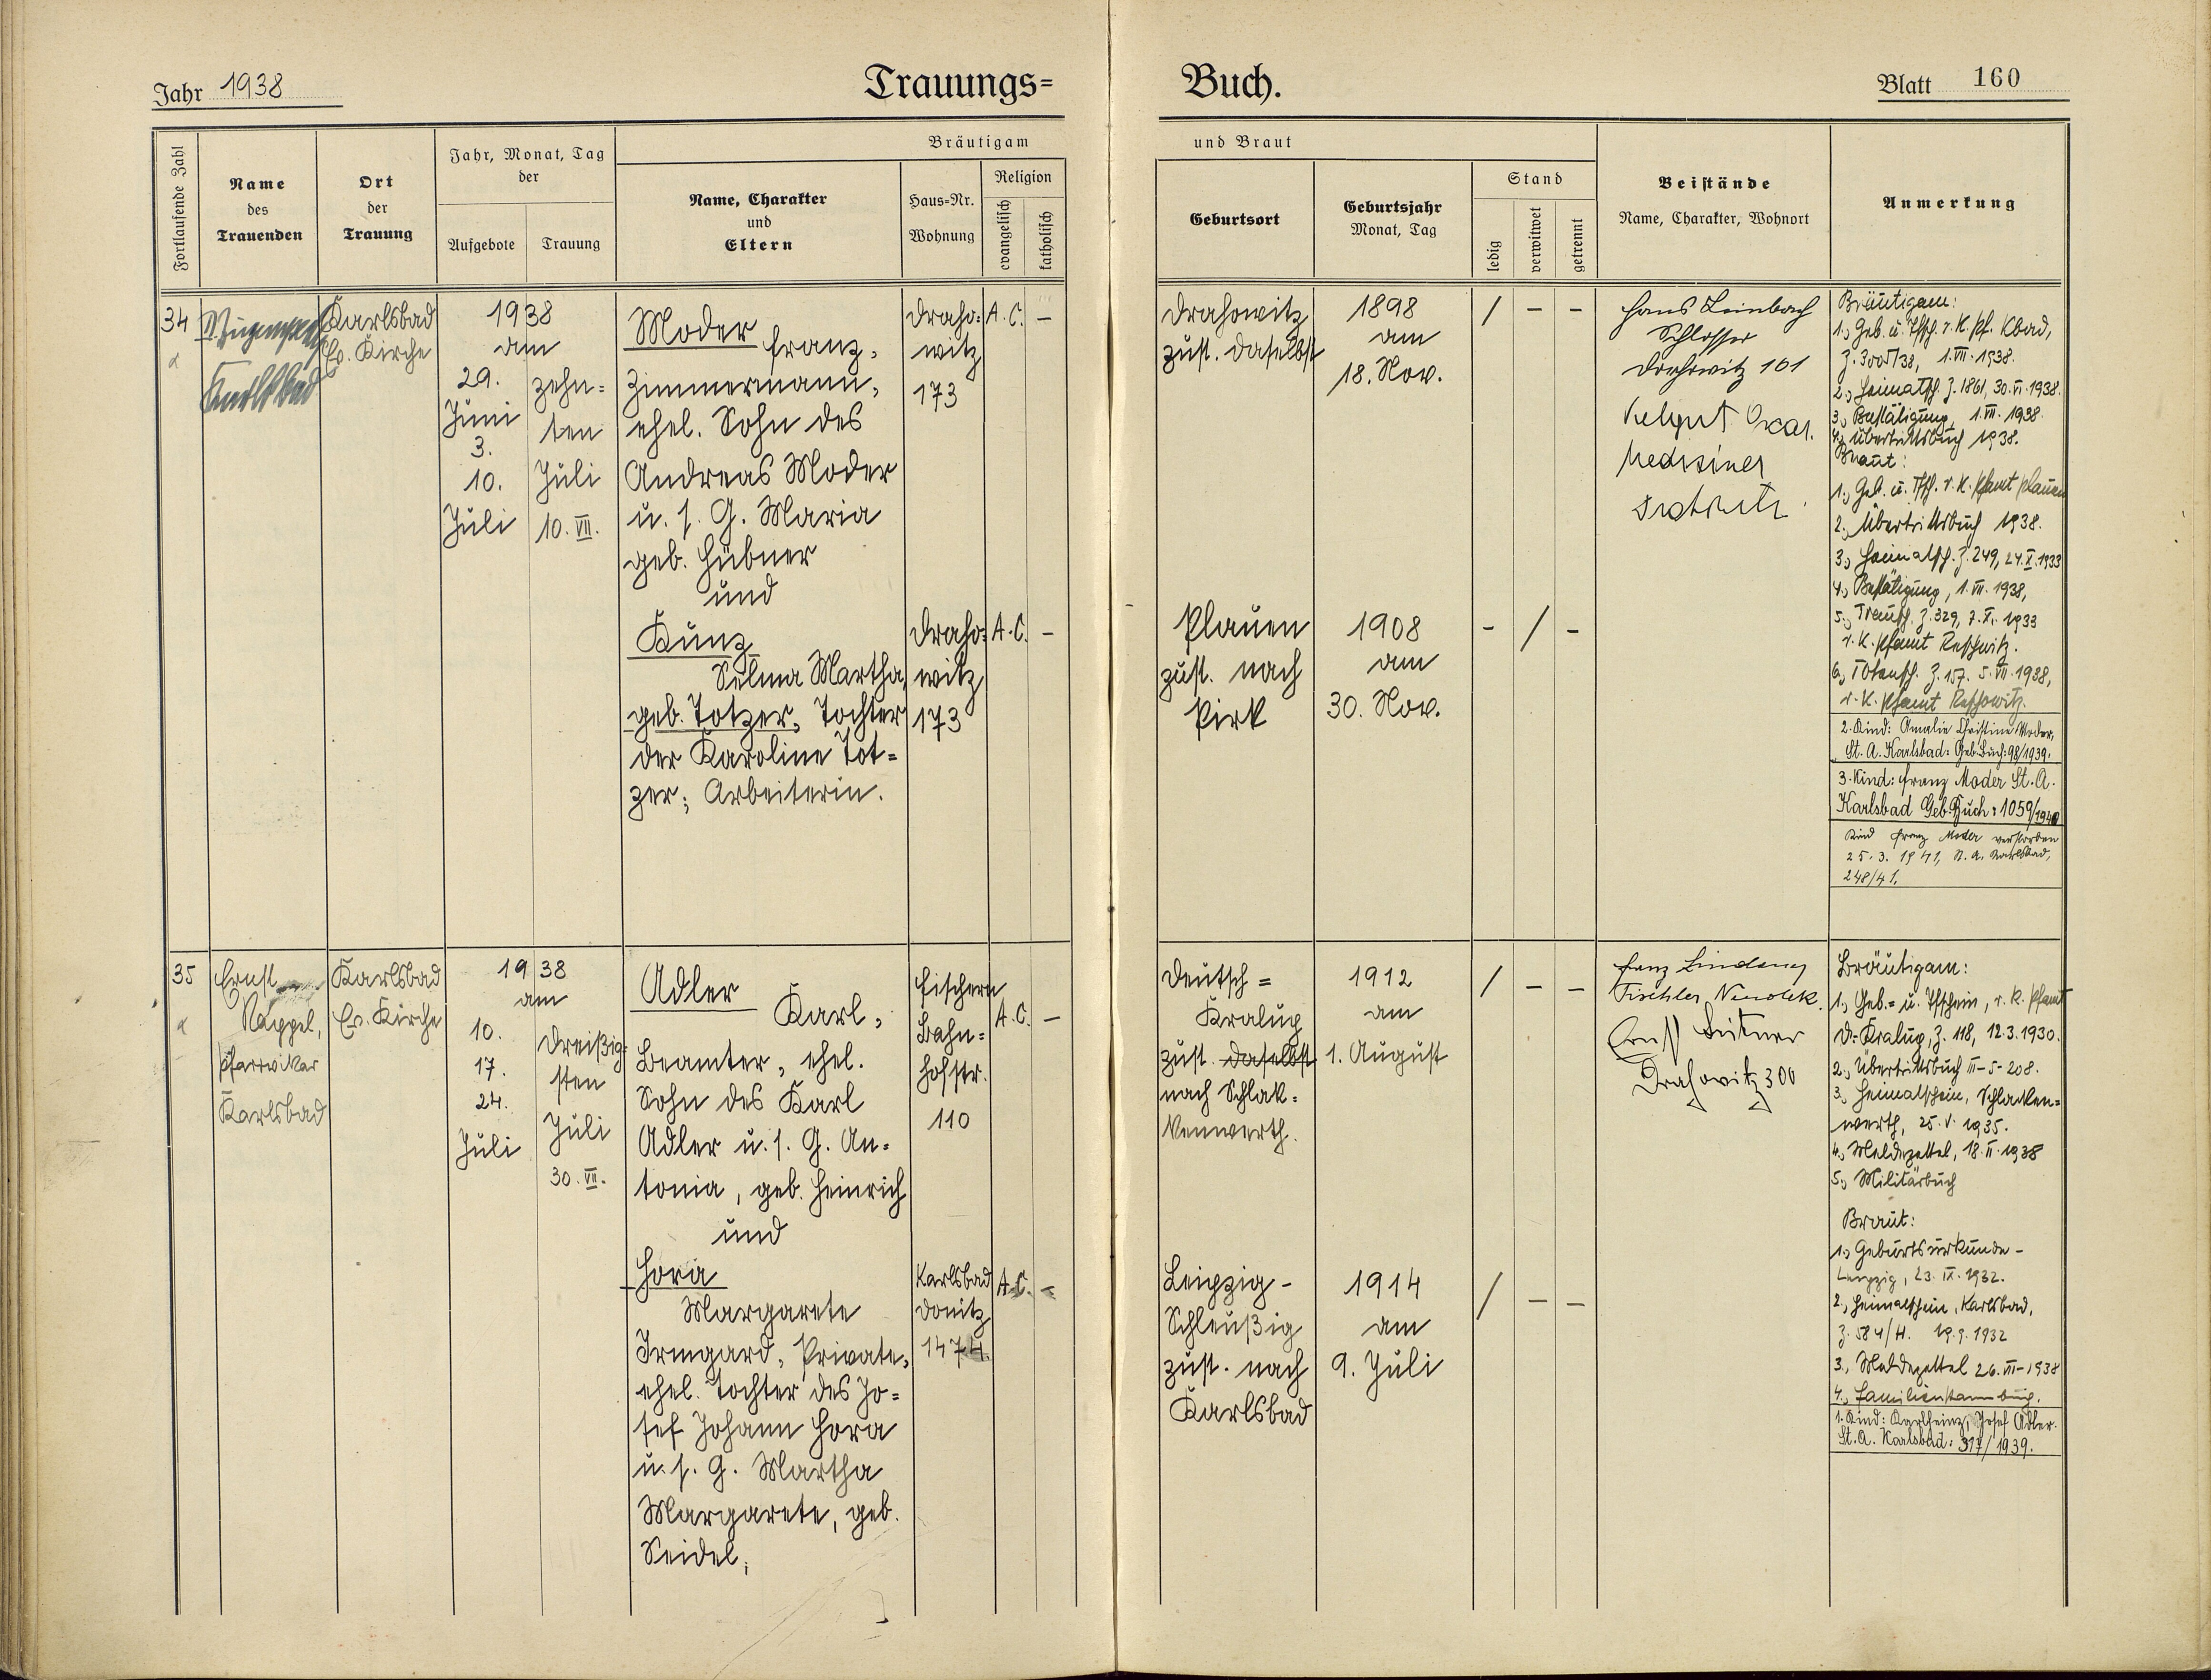 Jahr 1938
Trauungs=
Buch.
Blatt 160
Fortlaufende Zahl
Name
des
Trauenden
Ort
der
Trauung
Jahr, Monat, Tag
der
Aufgebote
Trauung
Bräutigam
Name, Charakter
und
Eltern
Haus=Nr.
Wohnung
Religion
evangelisch
katholisch
und Braut
Geburtsort
Geburtsjahr
Monat, Tag
Stand
ledig
verwitwet
getrennt
Beistände
Name, Charakter, Wohnort
Anmerkung
34
Karlsbad
Karlsbad
Ev. Kirche
1938
am
29.
Juni
3.
10.
Juli
zehn=
ten
Juli
10. VII.
Moder
Franz,
Zimmermann,
ehel. Sohn des
Andreas Moder
u. s. G. Maria
geb. Hübner
und
Kunz
Selma Martha,
geb. Totzer, Tochter
der Karoline Tot=
zer; Arbeiterin.
Draho=
witz
173
A. C. –
Draho=
witz
173
A. C. –
Drahowitz
zust. daselbst
1898
am
18. Nov.
/ – –
Plauen
zust. nach
Pirk
1908
am
30. Nov.
– / –
Hans Leinbach
Schlosser
Drahowitz 101
Oscar
Mediziner
Bräutigam:
1.) Geb. u. Tfsch. r. K. Pf. Kbad,
Z. 3005/38, 1.VII.1938.
2.) Heimatsch. Z. 1861, 30.VI.1938.
3.) Bestätigung, 1.VII.1938.
4.) Übertrittsbuch 1938.
Braut:
1.) Geb. u. Tfsch. r. K. Pfamt Plauen
2.) Übertrittsbuch 1938.
3.) Heimatsch. Z. 249, 24.X.1933
4.) Bestätigung, 1.VII.1938,
5.) Trausch. Z. 329, 7.X.1933
r. K. Pfamt
6.) Totensch. Z. 157. 5.VII.1938,
r. K. Pfamt
2. Kind: Amalie Christine Moder,
St. A. Karlsbad: Geb. Buch: 98/1939.
3. Kind: Franz Moder St. A.
Karlsbad Geb. Buch: 1059/1940
Kind Franz Moder verstorben
25.3.1941, St. A. Karlsbad,
248/41.
35
Ernst
Kappel,
Pfarrvikar
Karlsbad
Karlsbad
Ev. Kirche
1938
am
10.
17.
24.
Juli
dreißig=
sten
Juli
30. VII.
Adler
Karl,
Beamter, ehel.
Sohn des Karl
Adler u. s. G. An=
tonia, geb. Heinrich
und
Hora
Margarete
Irmgard, Private,
ehel. Tochter des Jo=
sef Johann Hora
u. s. G. Martha
Margarete, geb.
Seidel;
Fischern
Bahn=
hofstr.
110
A. C. –
Karlsbad
Donitz
1474.
A. C. –
Deutsch=
Kralup
zust. daselbst
nach Schlak=
kenwerth.
1912
am
1. August
/ – –
Leipzig-
Schleußig
zust. nach
Karlsbad
1914
am
9. Juli
/ – –
Tischler
Ernst
Drahowitz 300
Bräutigam:
1.) Geb.= u. Tfschein, r. K. Pfamt
D.-Kralup, Z. 118, 12.3.1930.
2.) Übertrittsbuch III-5-208.
3.) Heimatschein, Schlacken=
werth, 25.V.1935.
4.) Meldezettel, 18.II.1938
5.) Militärbuch
Braut:
1.) Geburtsurkunde -
Leipzig, 23.IX.1932.
2.) Heimatschein, Karlsbad,
Z. 584/H. 19.9.1932
3.) Meldezettel 26.VII-1938
4.) Familienstammbuch.
1. Kind: Karlheinz, Josef Adler.
St. A. Karlsbad: 317/1939.